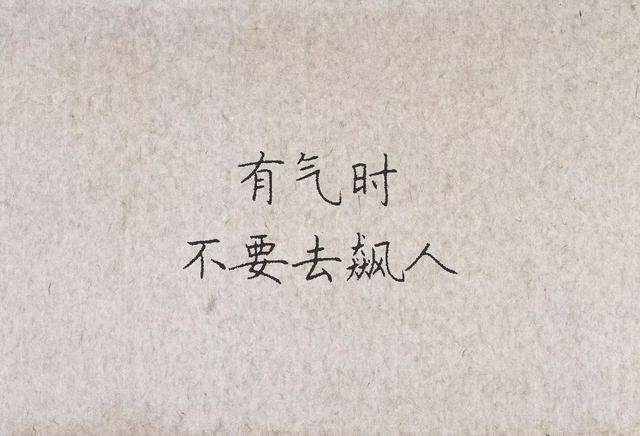 有气时
不要去飙人